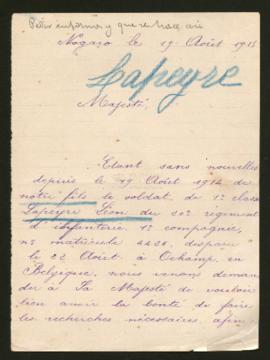 Pedir informes y que se hace aqui
Nogaro le 19 Août 1915
Lapeyre
Majesté,
Etant sans nouvelles
depuis le 19 Août 1914 de
notre fils le soldat de 1e classe
Lapeyre Léon du 20e régiment
d'infanterie, 1e compagnie,
no matricule 4426, disparu
le 22 Août à Ochamp, en
Belgique, nous venons deman
der à Sa Majesté de vouloir
bien avoir la bonté de faire
les recherches nécessaires, afin